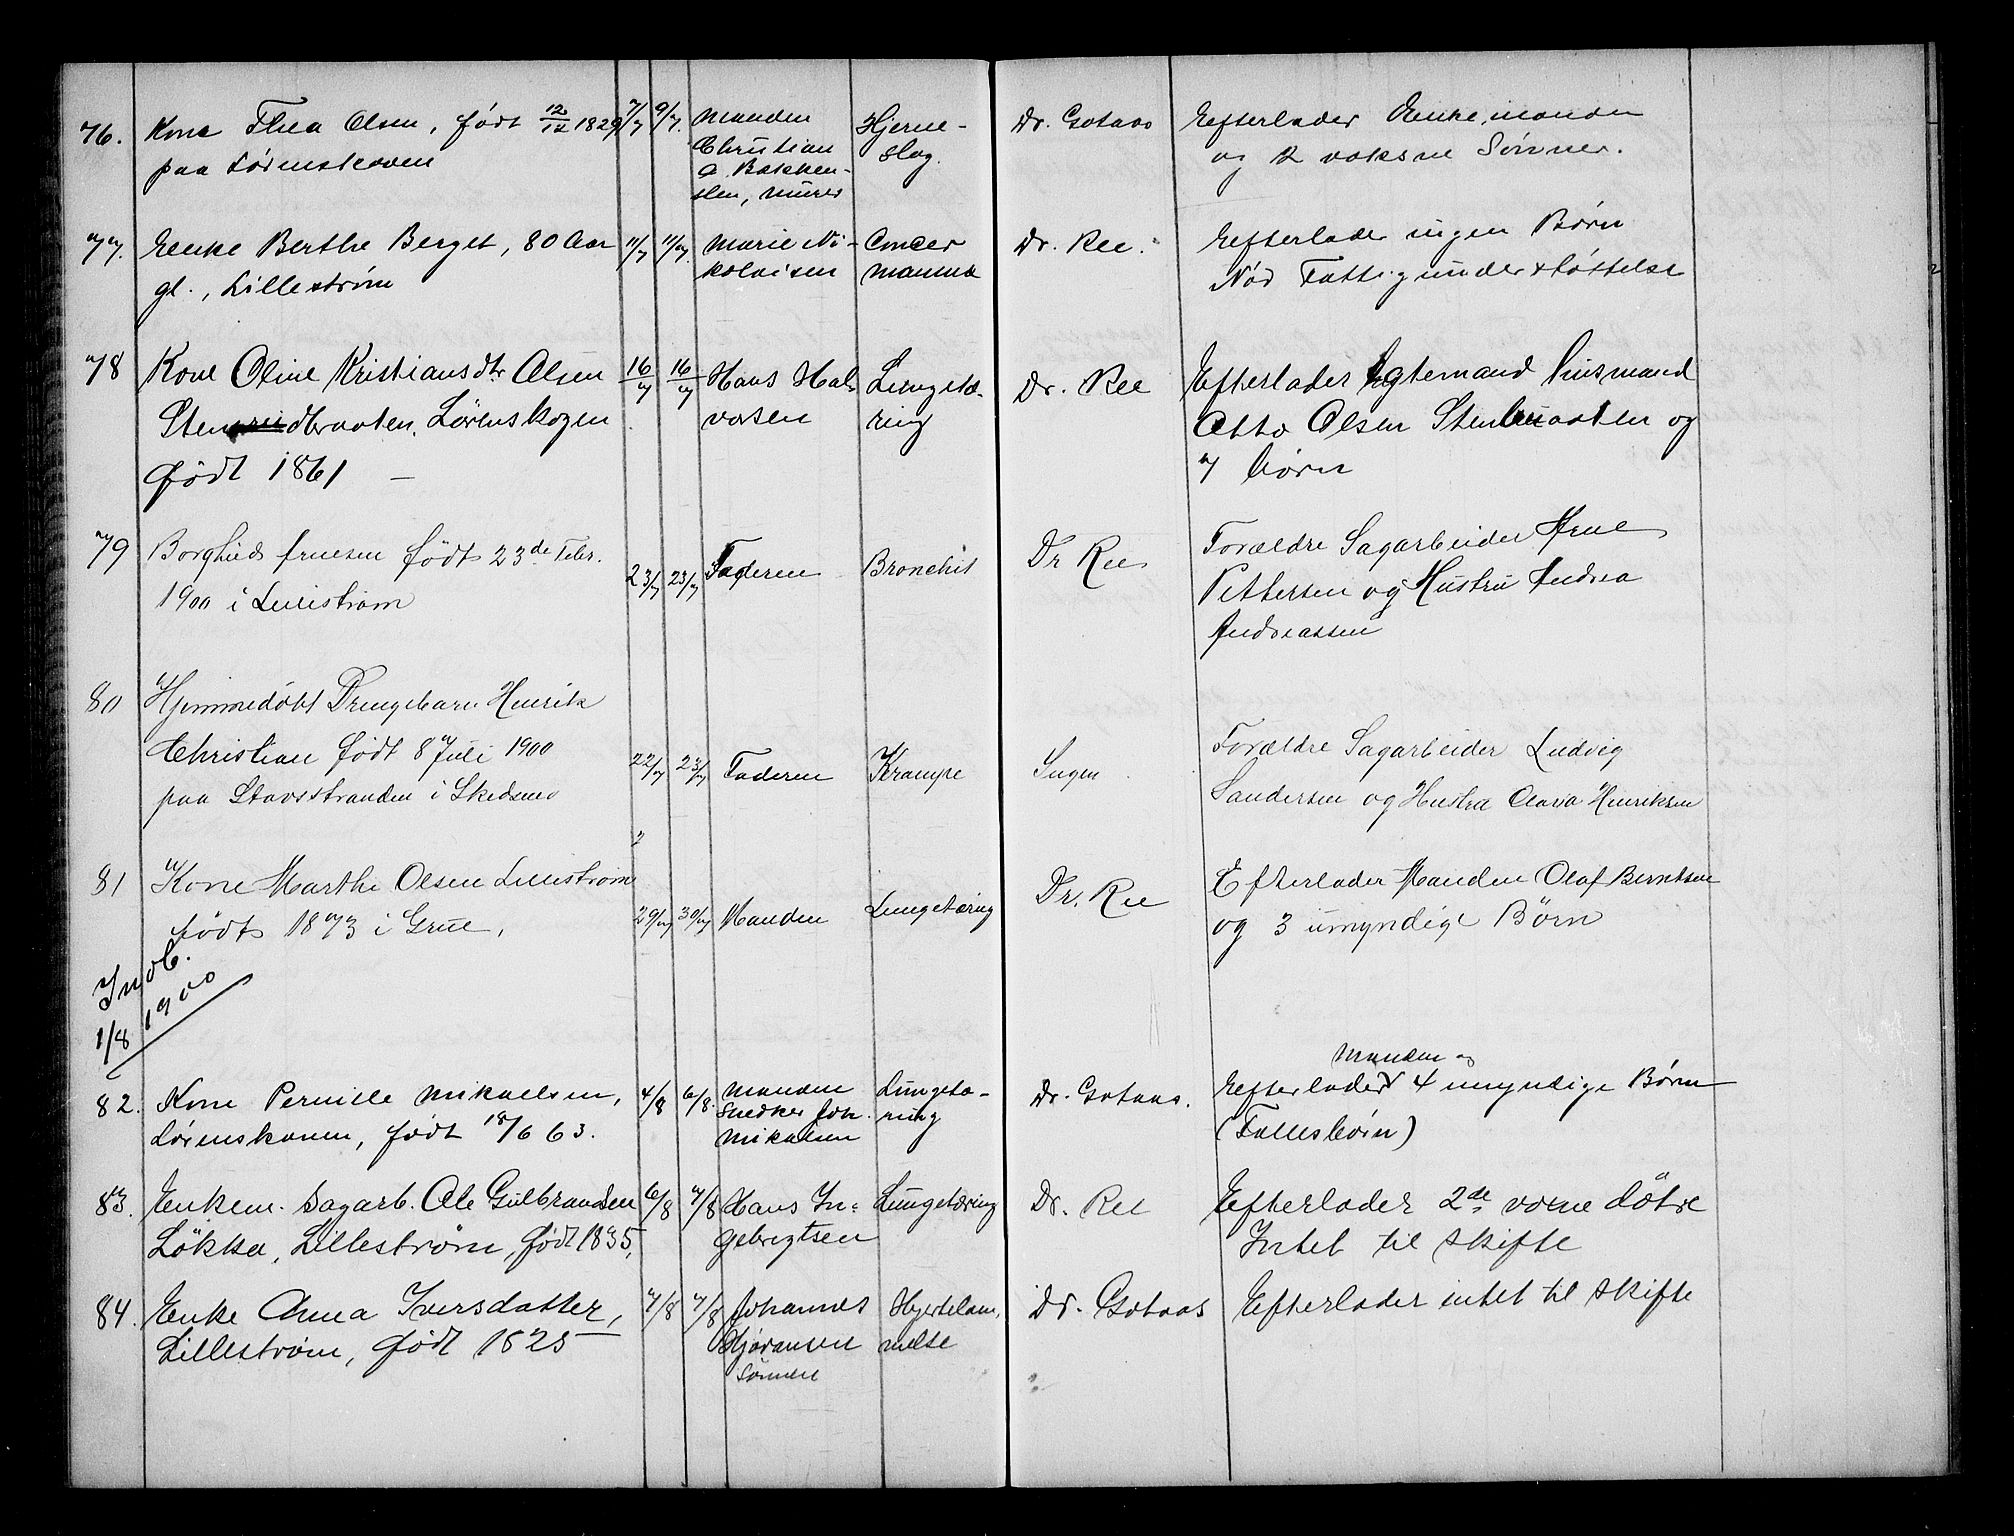 76. Kone Thea Olsen, født 12/12 1829 7/7 9/7. Manden Hjerne- Dr. Gotaas Efterlader Enkemanden
paa Lørenskoven Christian slag. og 2 voksne Sønner.
A. Bakken-
sten, murer
77. Enke Berthe Berget, 80 Aar 11/7 11/7. Marie Ni- Cancer Dr. Ree. Efterlader ingen Børn
gl., Lillestrøm kolaisen mammæ Nød Fattigunderstøttelse
78 Kone Oline Kristiansdtr Olsen 16/7 16/7 Hans Hal- Lungetæ- Dr. Ree Efterlader Ægtemand Husmand
Stenbraaten, Lørenskogen vorsen ring Otto Olsen Stenbraaten og
født 1861 – 7 børn
79 Borghild Arnesen født 23de Febr. 23/7 23/7 Faderen Bronchit Dr Ree Forældre Sagarbeider Arne
1900 i Lillestrøm Pettersen og Hustru Andrea
Andreassen
80 Hjemmedøbt Drengebarn Henrik
Christian født 8 Juli 1900 22/7 23/7 Faderen Krampe Ingen Forældre Sagarbeider Ludvig
paa Stavsstranden i Skedsmo Sandersen og Hustru Olava Henriksen
81 Kone Marthe Olsen Lillestrøm Dr. Ree Efterlader Manden Olaf Berntsen
født 1873 i Grue, 29/7 30/7 Manden Lungetæring og 3 umyndige Børn
Indb.
1/8 1900
Manden og
82. Kone Pernille Mikaelsen, 4/8 6/8. Manden Lungetæ- Dr. Gotaas. Efterlader 4 umyndige Børn
Lørenskoven, født 18/6 63. Snedker Joh. ring (Fællesbørn)
Mikalsen
83. Enkem. Sagarb. Ole Gulbrandsen 6/8 7/8 Hans In- Lungetæring Dr. Ree Efterlader 2de voxne døtre
Løkka, Lillestrøm, født 1835, gebrigtsen Intet til skifte
84. Enke Anna Iversdatter, 7/8 7/8 Johannes Hjertelam- Dr. Gotaas Efterlader intet til skifte
Lillestrøm, født 1825 Hjøransen melse
Sønnen